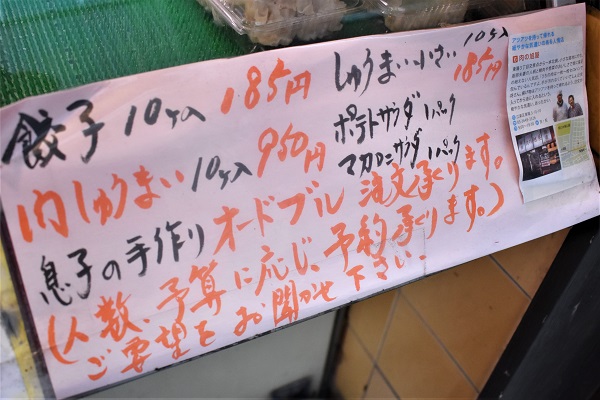 餃子 10ヶ入 185円
しゅうまい小さい 10ヶ入 185円
肉しゅうまい 10ヶ入 950円
ポテトサラダ 1パック
マカロニサラダ 1パック
息子の手作りオードブル注文承ります。
(人数、予算に応じ、予約承ります。)
ご要望をお聞かせ下さい。
肉の